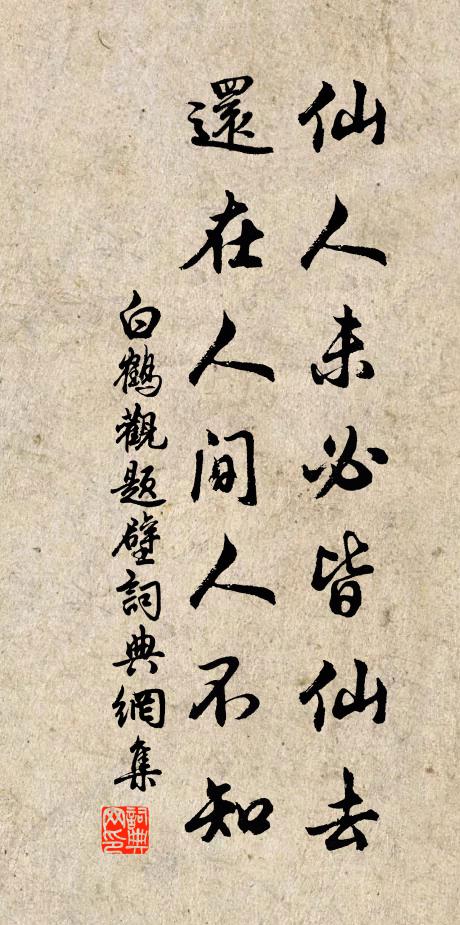 仙人未必皆仙去
還在人間人不知
白鶴觀題壁詞典網集
詞典
网印